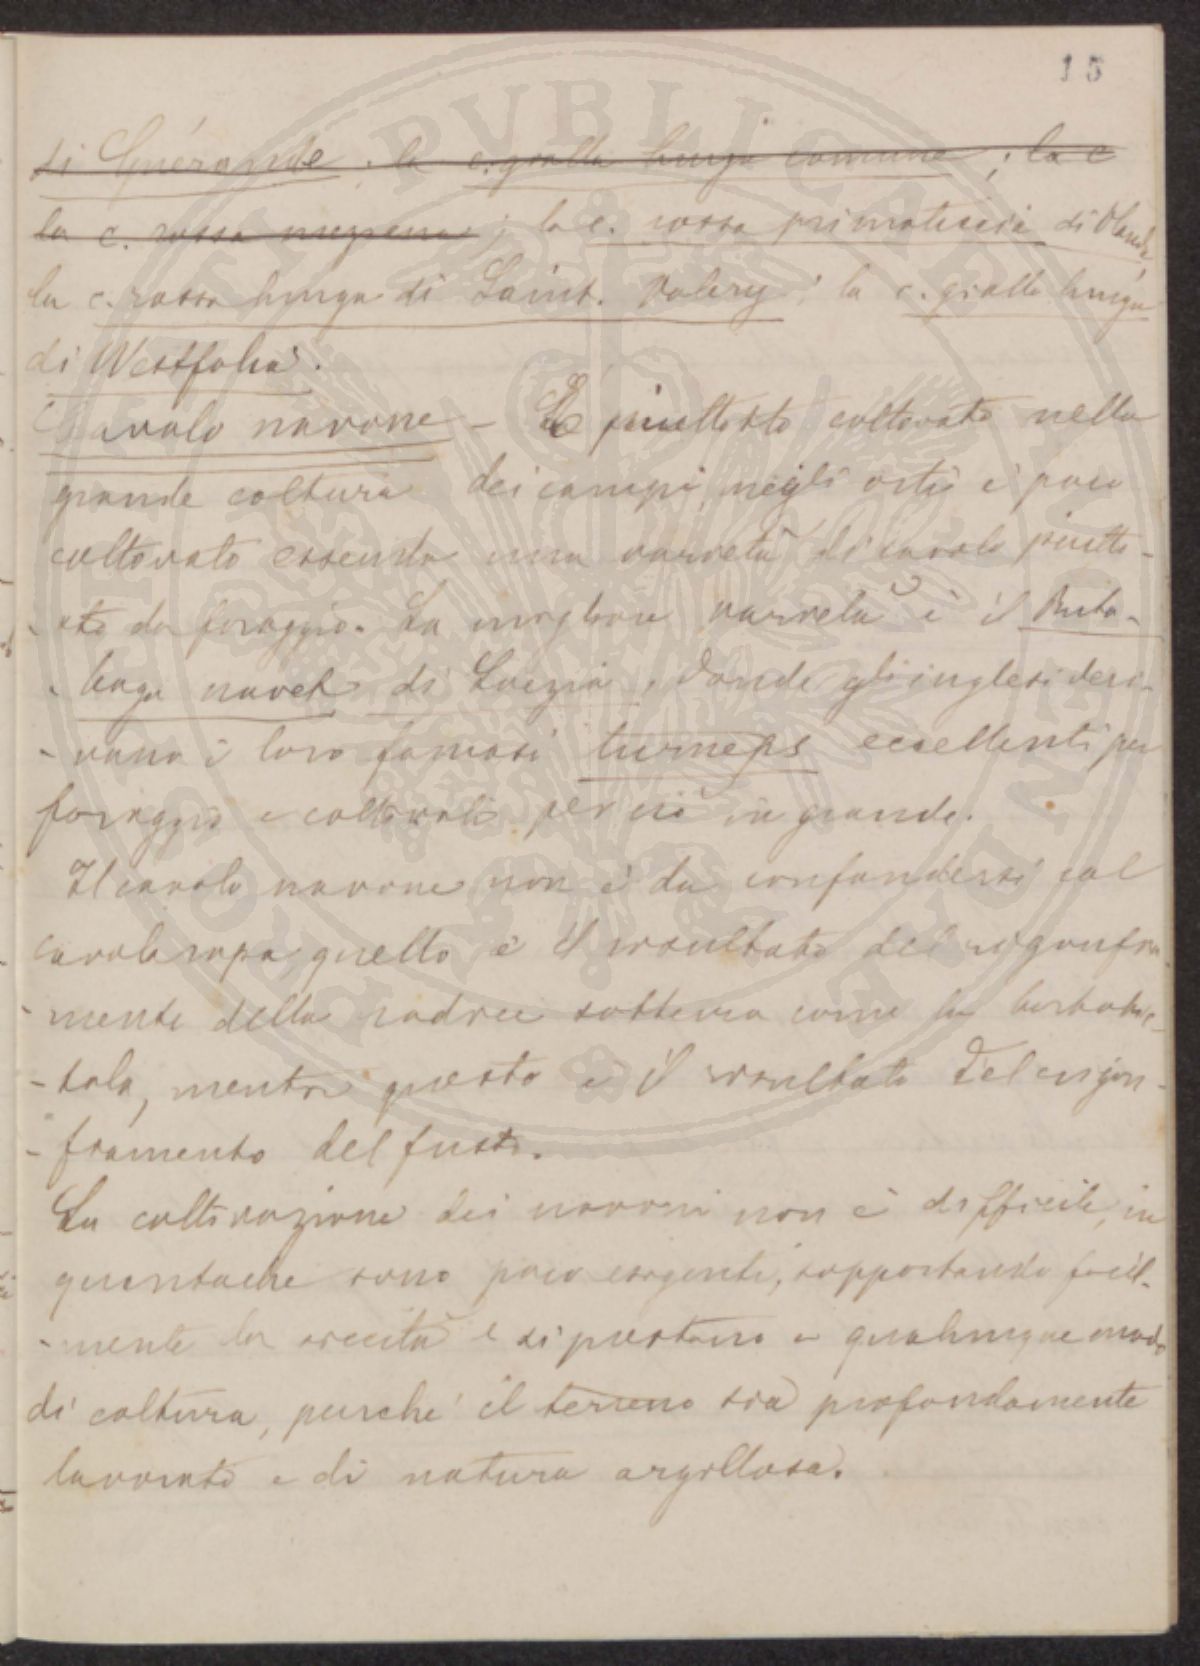 15
di Guérande; la c. gialla lunga comune; la c
la c. rossa mezzana; la c. rossa primaticcia di Olanda,
la c. rossa lunga di Saint. Valery; la c. gialla lunga
di Westfalia.
Cavolo navone - È piuttosto coltivato nella
grande coltura dei campi, negli orti è poco
coltivato essendo una varietà di cavolo piutto-
-sto da foraggio. La migliore varietà è il Ruta-
-baga navet di Svezia, donde gli inglesi deri-
-vano i loro famosi turneps eccellenti per
foraggio e coltivati perciò in grande.
Il cavolo navone non è da confondersi col
cavolo rapa, quello è il risultato del rigonfia
-mento della radice sotterra come la barbabie-
-tola, mentre questo è il risultato del rigon-
-fiamento del fusto.
La coltivazione dei navoni non è difficile, in
quantoche sono poco esigenti, sopportando facil-
-mente la siccità e si prestano a qualunque modo
di coltura, purché il terreno sia profondamente
lavorato e di natura argillosa.